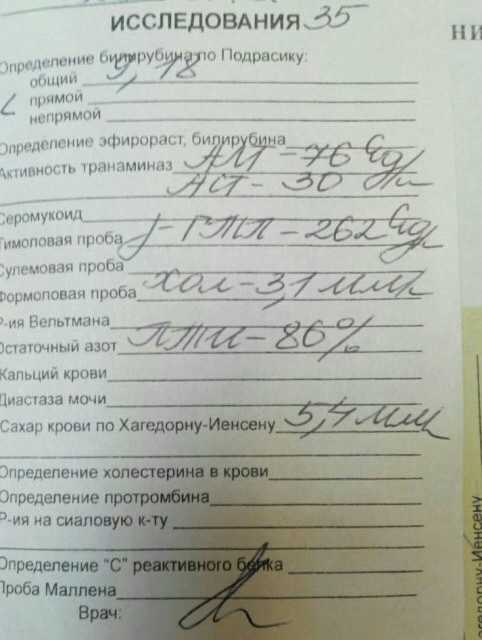 ИССЛЕДОВАНИЯ 35
НИ
Определение билирубина по Подрасику:
общий 9,18
прямой
непрямой
Определение эфирораст, билирубина
Активность транаминаз АЛТ - 76 Ед/л
АСТ - 30
Серомукоид
Тимоловая проба γ-ГТП - 262 Ед/л
Сулемовая проба
Формоловая проба Хол - 3,1 ммл
Р-ия Вельтмана
Остаточный азот ПТИ - 86%
Кальций крови
Диастаза мочи
Сахар крови по Хагедорну-Иенсену 5,4 мм
Определение холестерина в крови
Определение протромбина
Р-ия на сиаловую к-ту
Определение "С" реактивного белка
Проба Маллена
Врач:
агедорну-Иенсену